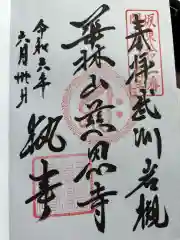 奉拝 武州岩槻
華林山慈恩寺
令和六年
六月卅日
執事